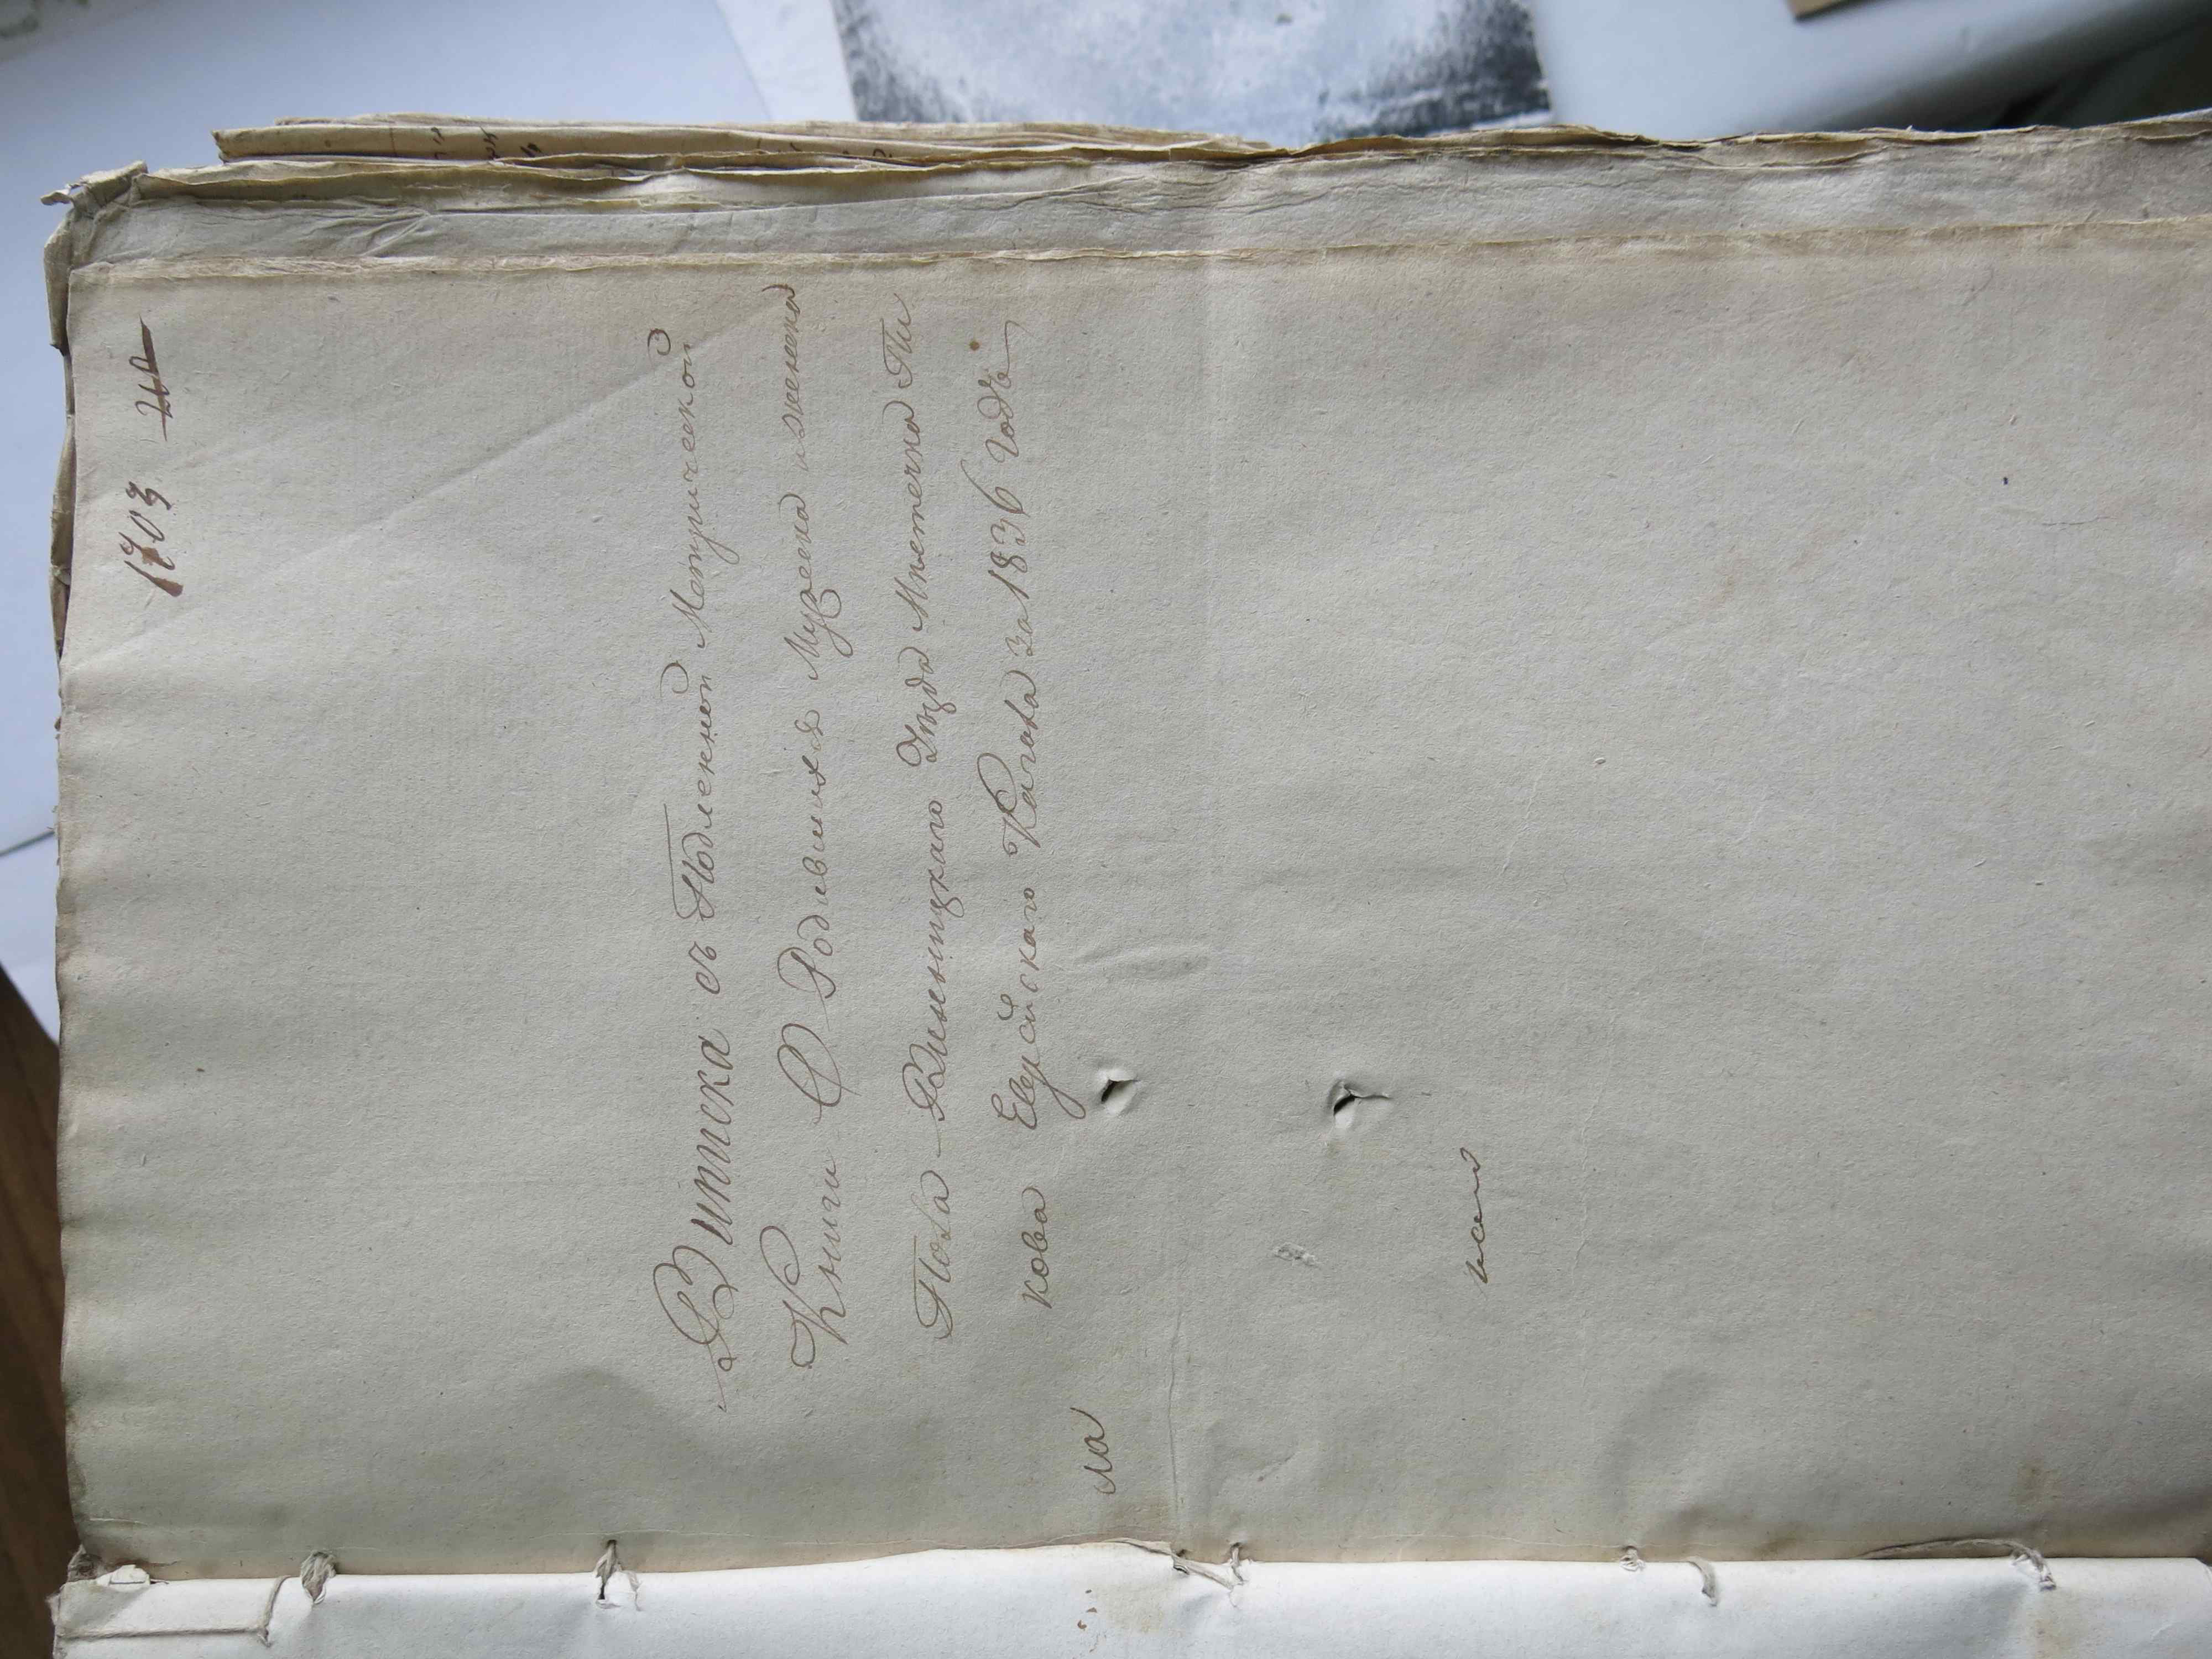 1703
Випска съ Подленной Метрической
Книги О Родившихя Мужеска иженска
Пола Винницкаго Уезда Местечка Пи
кова Еврейскаго Кагала За 1836 Годъ
ла